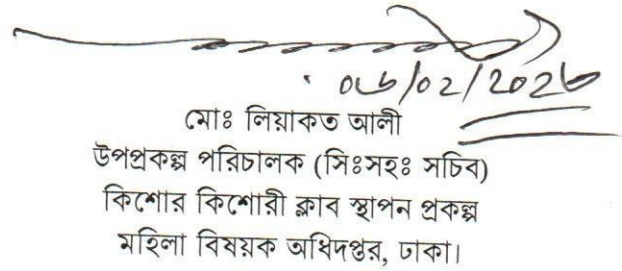 ০৬/০২/২০২৬
মোঃ লিয়াকত আলী
উপপ্রকল্প পরিচালক (সিঃসহঃ সচিব)
কিশোর কিশোরী ক্লাব স্থাপন প্রকল্প
মহিলা বিষয়ক অধিদপ্তর, ঢাকা।